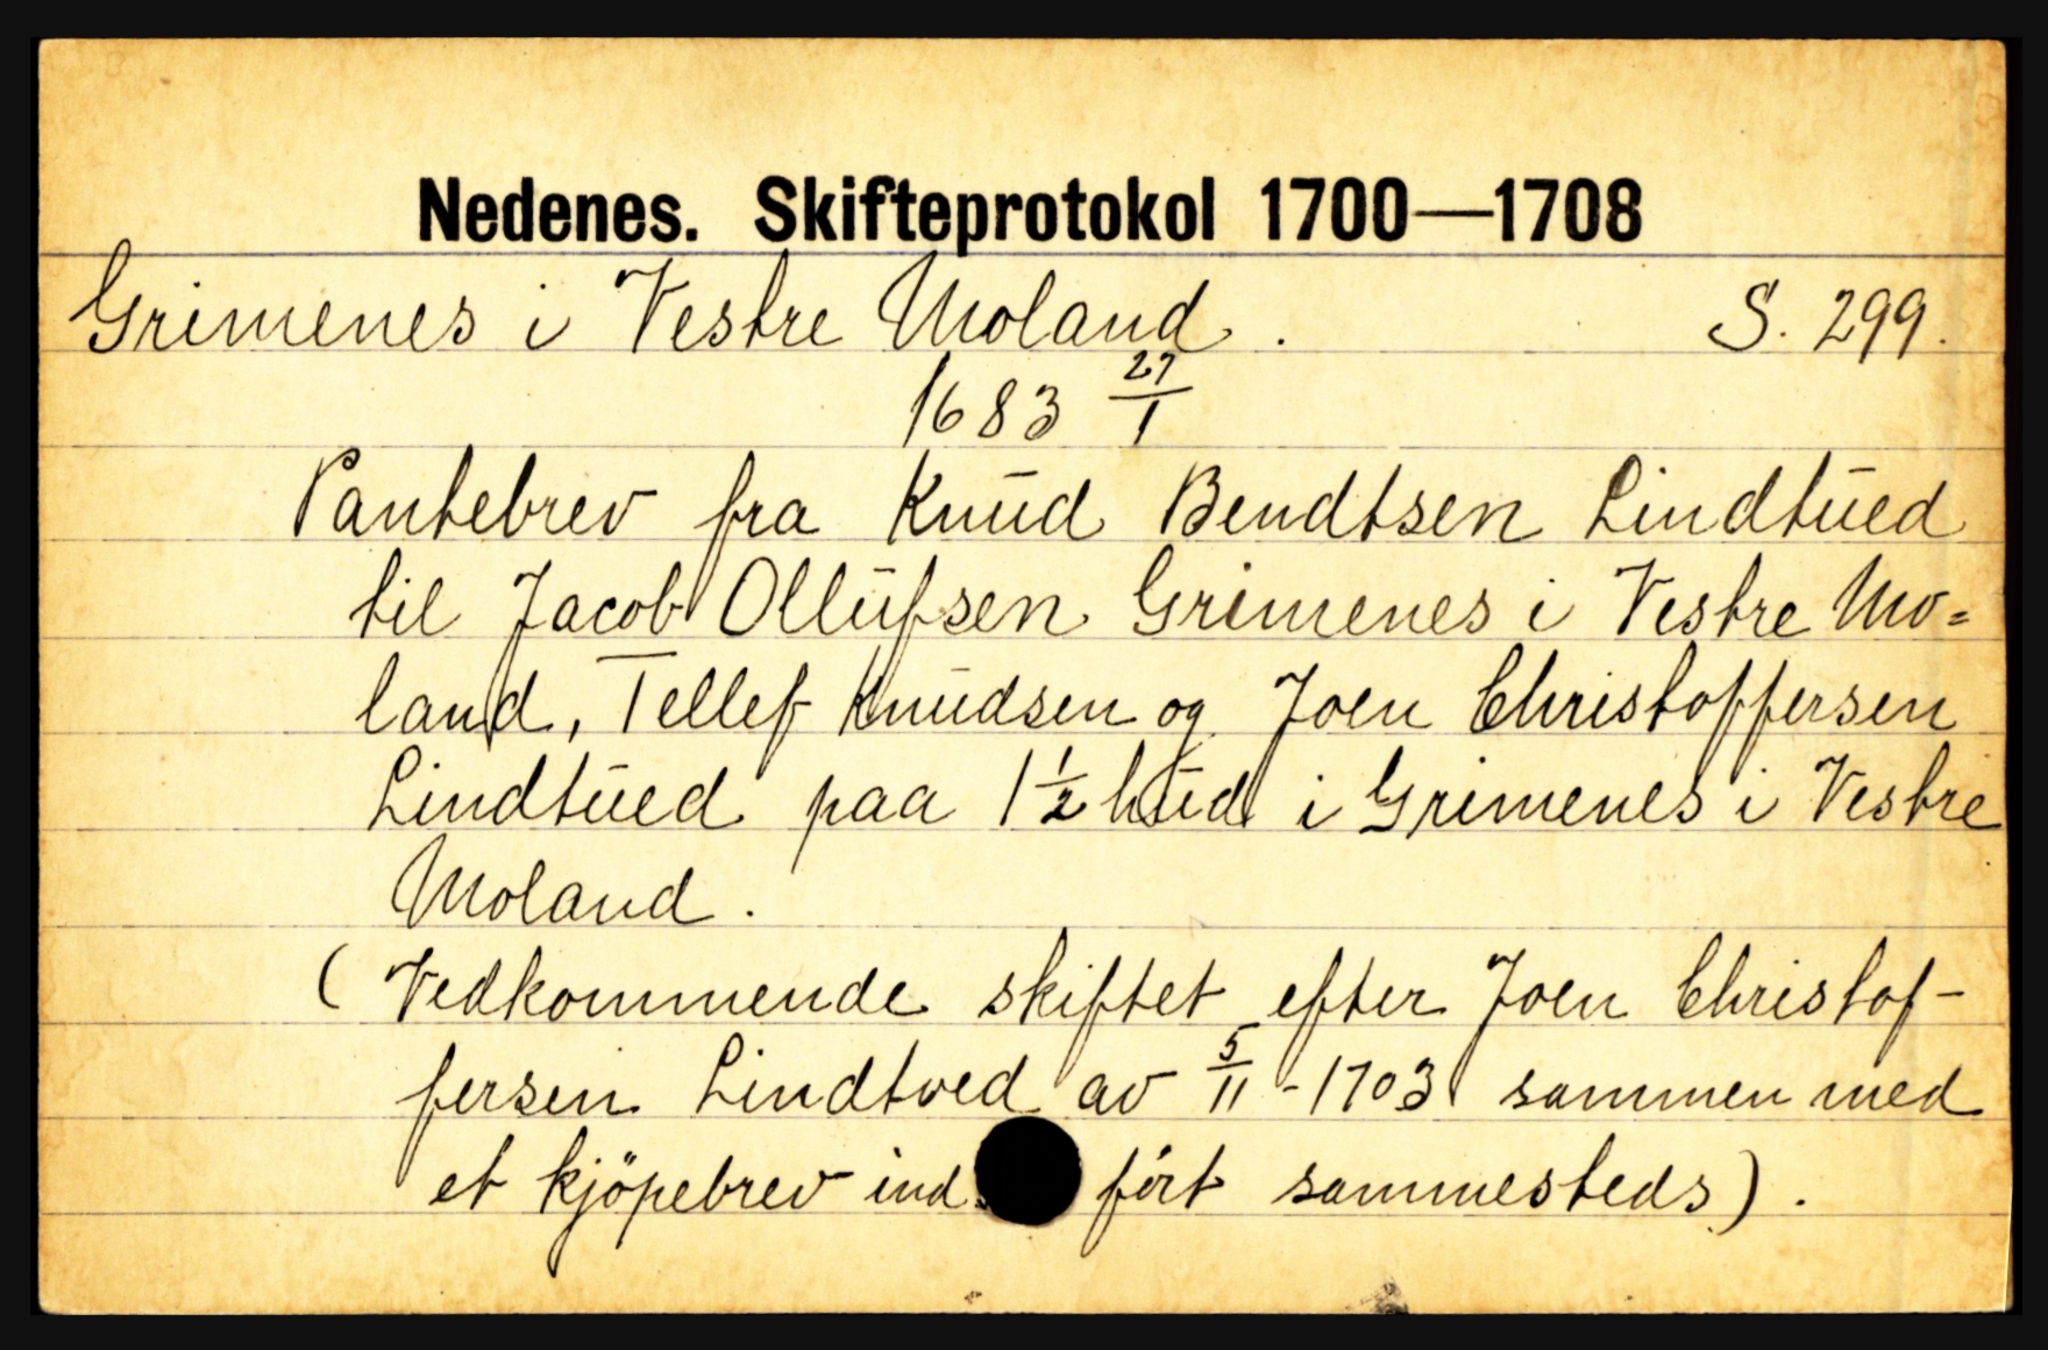 Nedenes. Skifteprotokol 1700—1708
Grimenes i Vestre Moland. S. 299.
1683 27/1
Pantebrev fra Knud Bendtsen Lindtued
til Jacob Ollufsen Grimenes i Vestre Mo=
land, Tellef Knudsen og Joen Christoffersen
Lindtued paa 1 1/2 hud i Grimenes i Vestre
Moland.
(Vedkommende skiftet efter Joen Christof-
fersen Lindtved av 5/11 - 1703 sammen med
et kjöpebrev ind ført sammesteds).